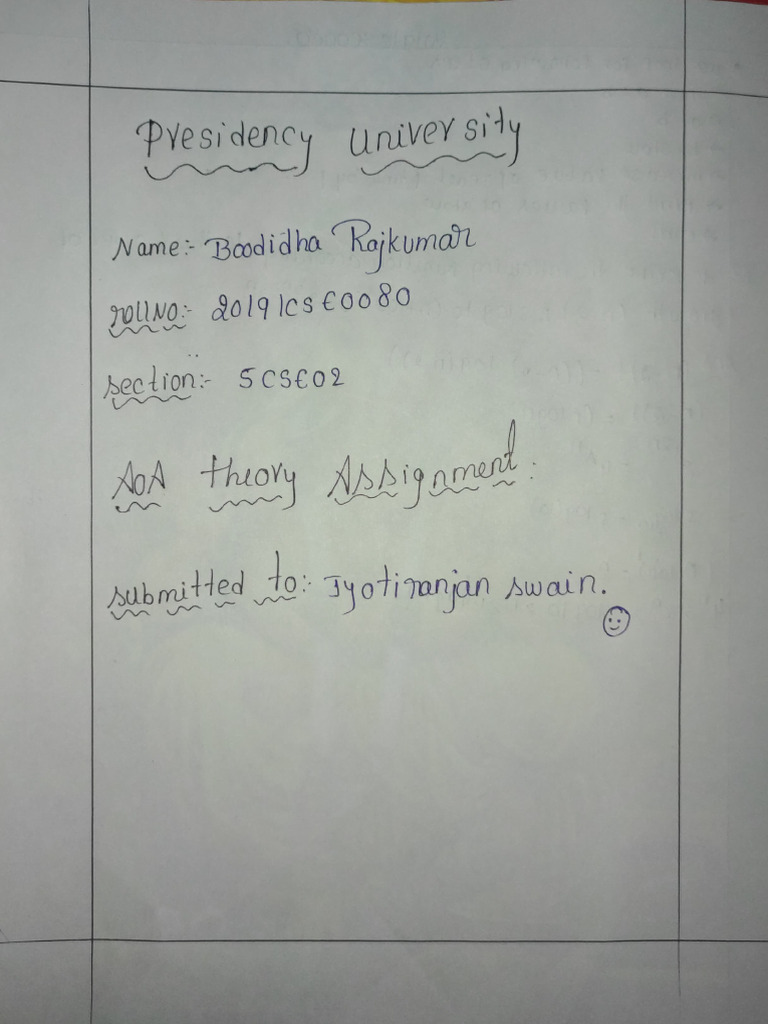 Presidency University
Name:- Boodidha Rajkumar
rollNo:- 20191CSE0080
section:- 5CSE02
AOA theory Assignment:
submitted to:- Jyotiranjan swain.